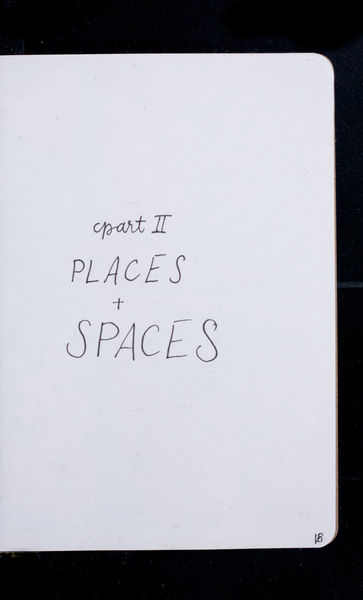 part II
PLACES
+
SPACES